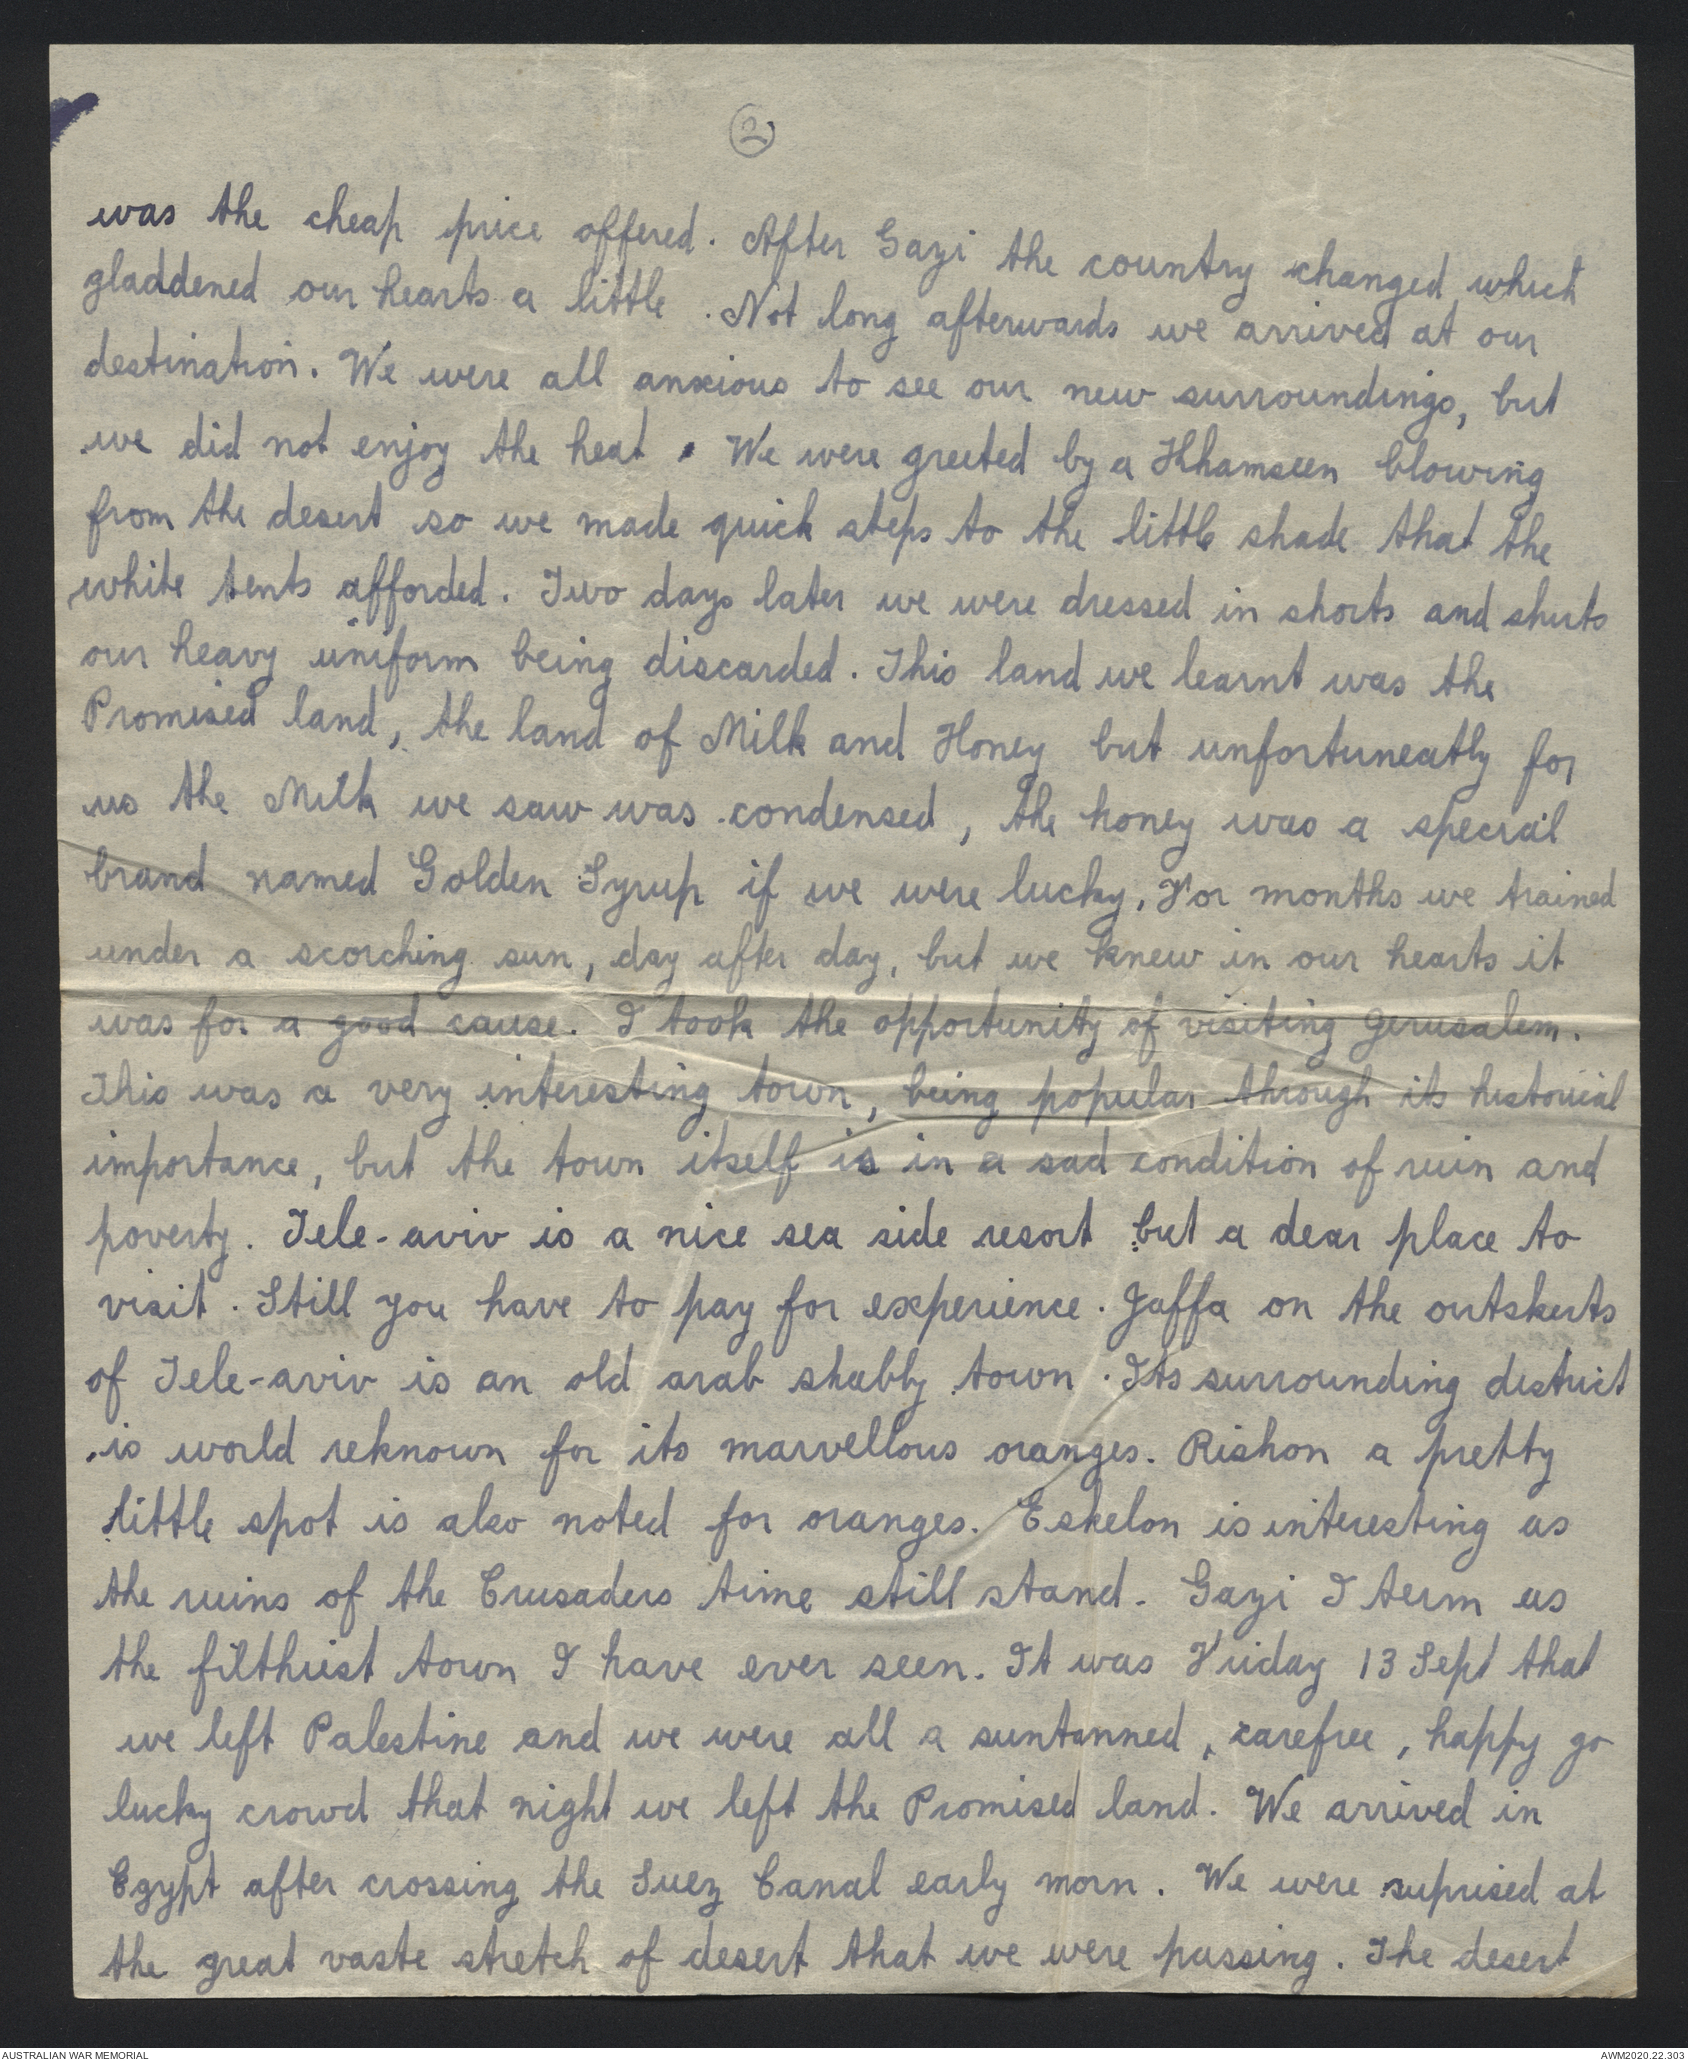 2
was the cheap price offered. After Gazi the country changed which
gladdened our hearts a little. Not long afterwards we arrived at our
destination. We were all anxious to see our new surroundings, but
we did not enjoy the heat. We were greeted by a Khamseen blowing
from the desert so we made quick steps to the little shade that the
white tents afforded. Two days later we were dressed in shorts and shirts
our heavy uniform being discarded. This land we learnt was the
Promised land, the land of Milk and Honey but unfortuneatly for
us the Milk we saw was condensed, the honey was a special
brand named Golden Syrup if we were lucky. For months we trained
under a scorching sun, day after day, but we knew in our hearts it
was for a good cause. I took the opportunity of visiting Jerusalem.
This was a very interesting town, being popular through its historical
importance, but the town itself is in a sad condition of ruin and
poverty. Tele-aviv is a nice sea side resort but a dear place to
visit. Still you have to pay for experience. Jaffa on the outskerts
of Tele-aviv is an old arab shabby town. Its surrounding district
is world reknown for its marvellous oranges. Rishon a pretty
little spot is also noted for oranges. Eskelon is interesting as
the ruins of the Crusaders time still stand. Gazi I term as
the filthiest town I have ever seen. It was Friday 13 Sept that
we left Palestine and we were all a suntanned, carefree, happy go
lucky crowd that night we left the Promised land. We arrived in
Egypt after crossing the Suez Canal early morn. We were suprised at
the great vaste stretch of desert that we were passing. The desert
AUSTRALIAN WAR MEMORIAL
AWM2020.22.303